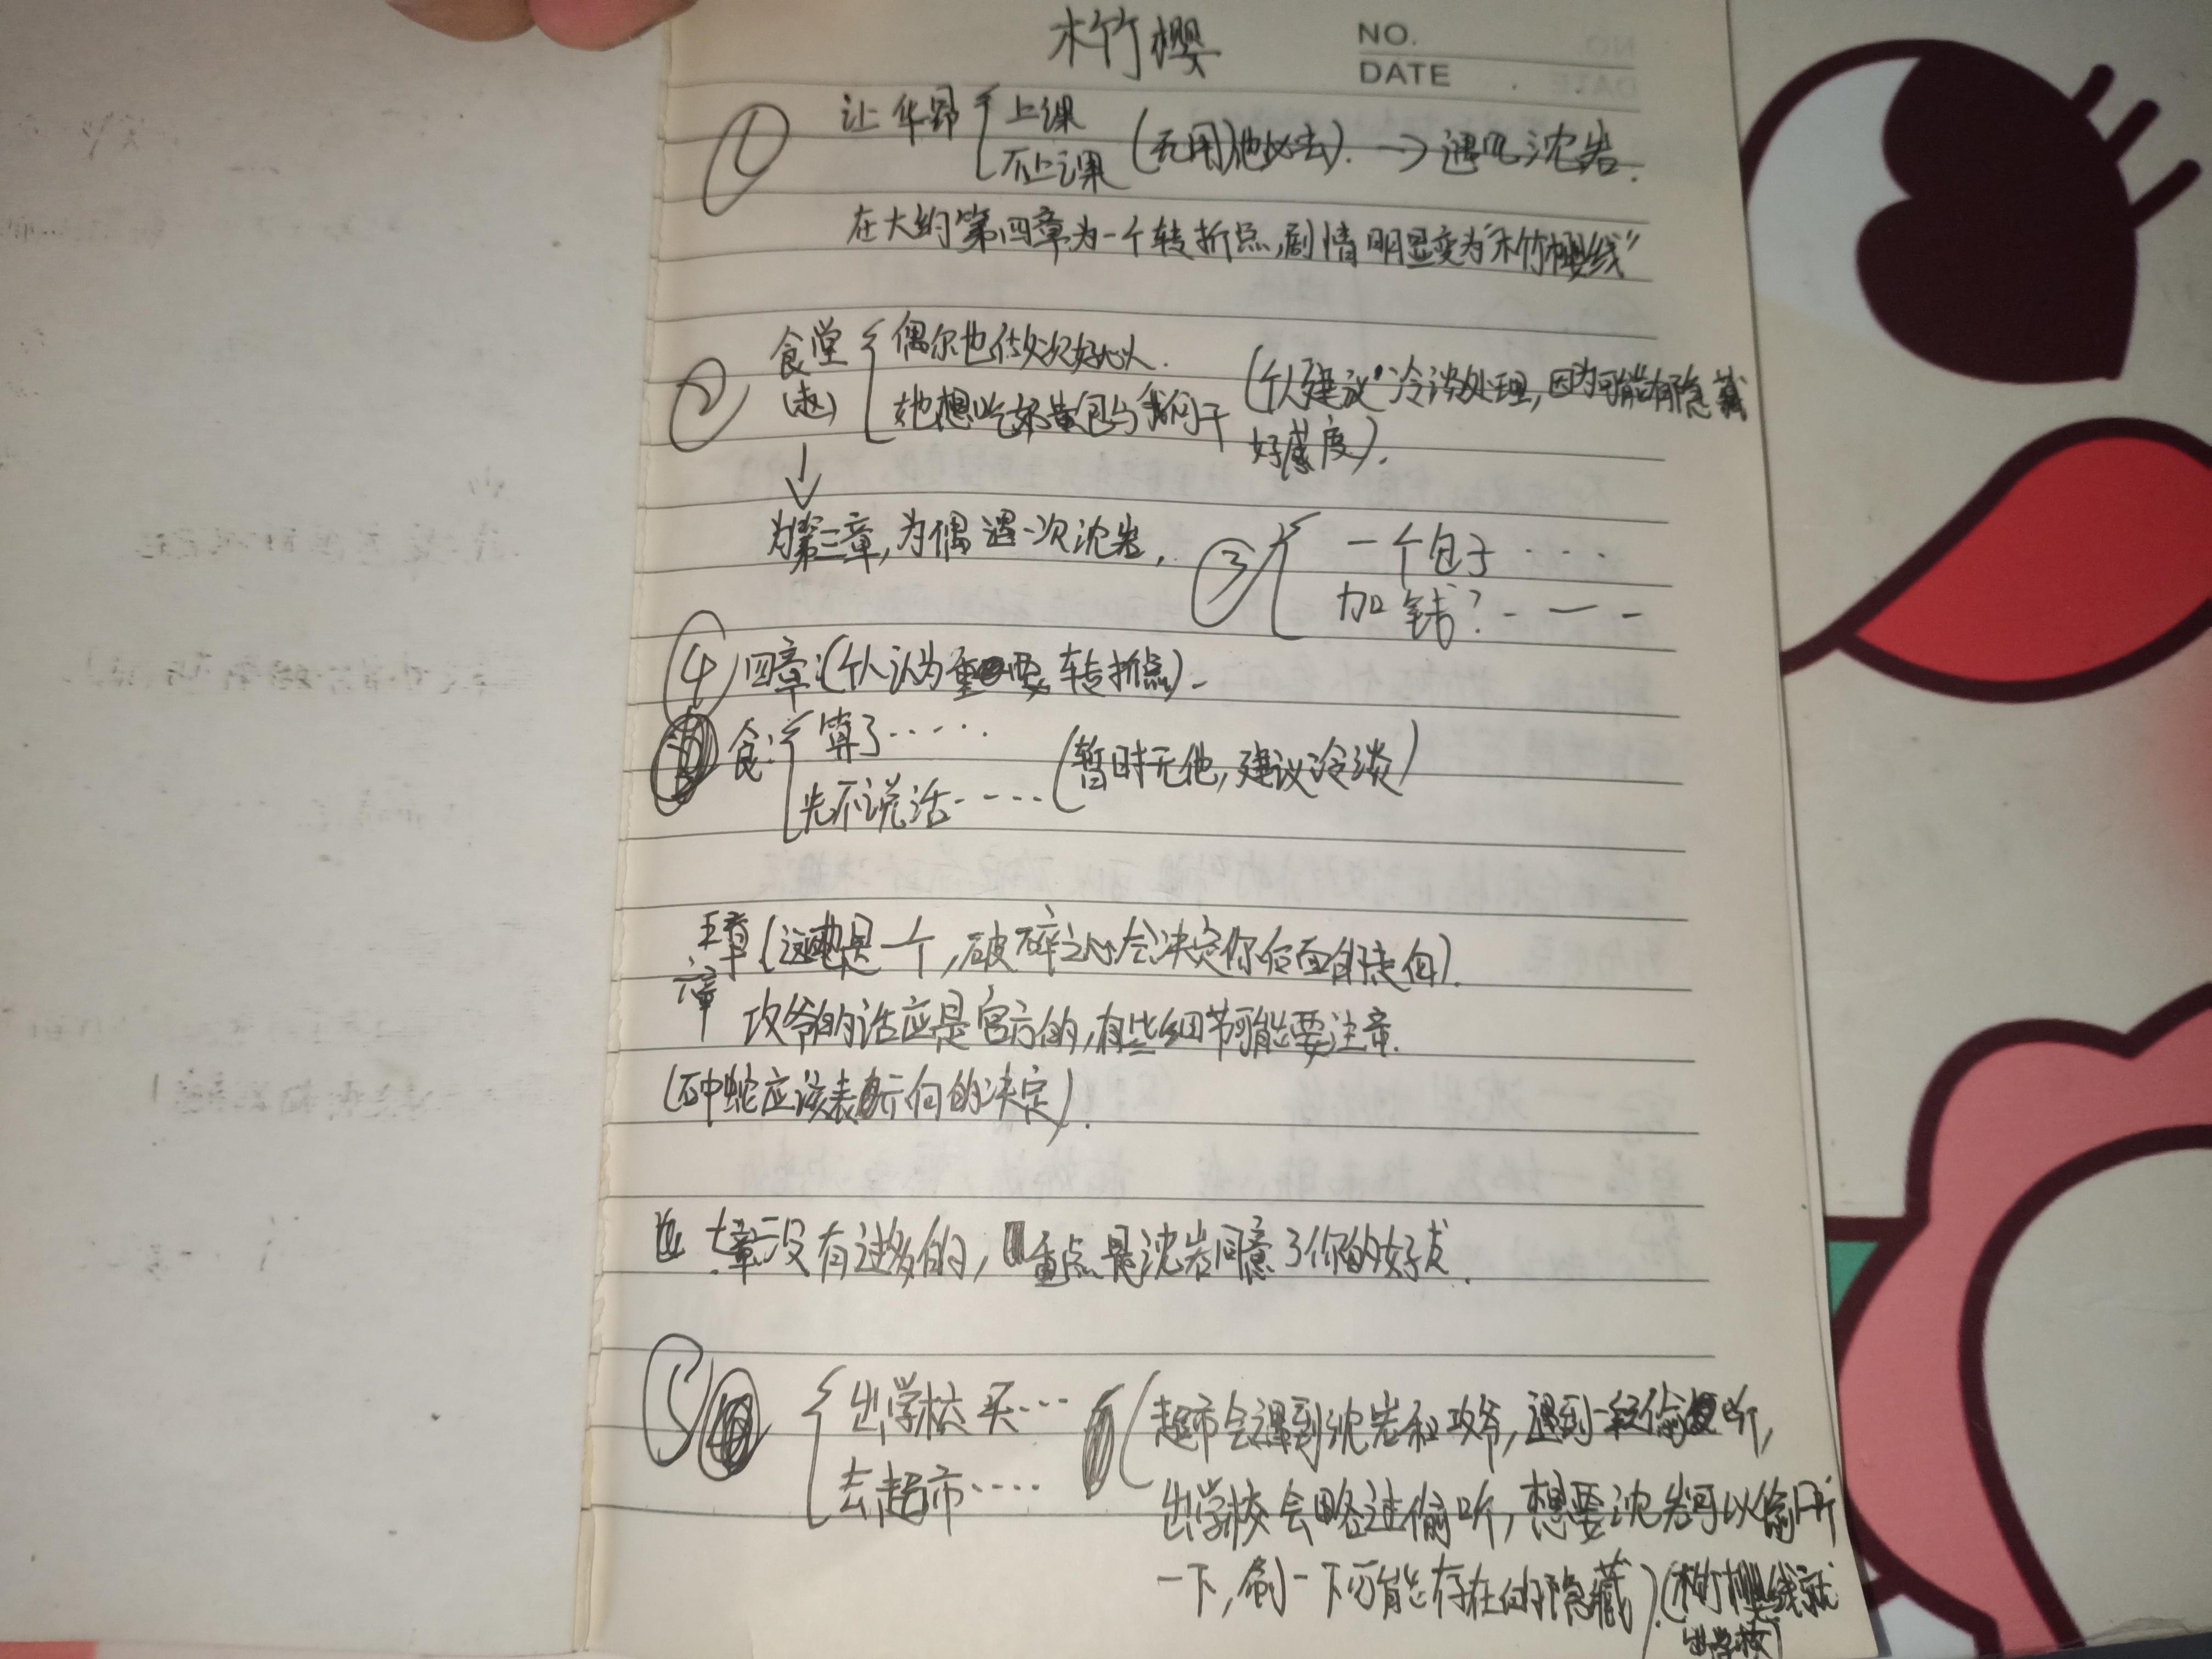 木竹樱
NO.
DATE
① 让华昴 上课
不上课 (无用)他必去). → 遇见沈岩.
在大约第四章为一个转折点,剧情明显变为"木竹樱线"
② 食堂 偶尔也做次好人.
(赵) 她想吃奶黄包与我何干 (个人建议冷淡处理,因为可能有隐藏
好感度).
↓
为第三章,为偶遇一次沈岩, ③ 一个包子····
加钱?- — -
④ 四章:(个人认为重要转折点).
食: 算了·····
先不说话···· (暂时无他,建议冷淡)
五章 (这也是一个,破碎之心会决定你后面的走向).
六章 攻爷的话应是官方的,有些细节可能要注意.
(石中蛇应该表示何的决定).
七章没有过多的,重点是沈岩同意了你的好友.
⑤ 出学校买···
去超市···· (超市会遇到沈岩和攻爷,遇到一段偷听,
出学校会略过偷听,想要沈岩可以偷听
一下,刷一下可能存在的隐藏).(木竹樱线就
出学校)